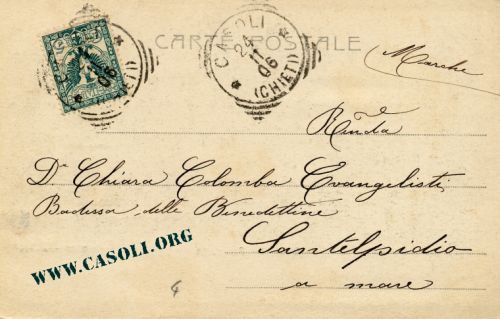 CARTE POSTALE
CASOLI
24
11
06
(CHIETI)
Marche
Rev.nda
D.a Chiara Colomba Evangelisti
Badessa delle Benedettine
Santelpidio
a mare
WWW.CASOLI.ORG